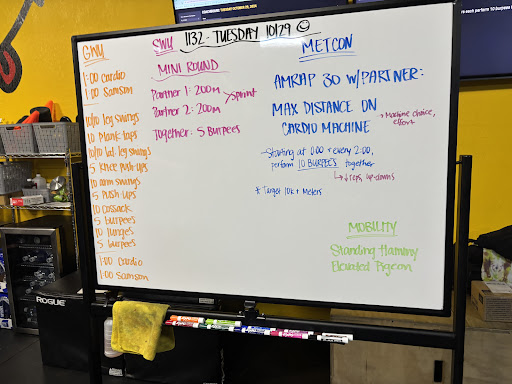 1132 - TUESDAY 10/29
GWU
1:00 Cardio
1:00 Samson
10/10 leg swings
10 Plank taps
10/10 lat leg swings
5 knee push-ups
10 arm swings
5 push-ups
10 cossack
5 burpees
10 lunges
5 burpees
1:00 Cardio
1:00 Samson
SWU
MINI ROUND
Partner 1: 200m
Partner 2: 200m
> Sprint
Together: 5 Burpees
METCON
AMRAP 30 W/PARTNER:
MAX DISTANCE ON
CARDIO MACHINE
→ Machine choice,
effort
- Starting at 0:00 + every 2:00,
perform 10 BURPEES together
↳ ↓ reps, up-downs
* Target 10k + Meters
MOBILITY
Standing Hammy
Elevated Pigeon
ROGUE